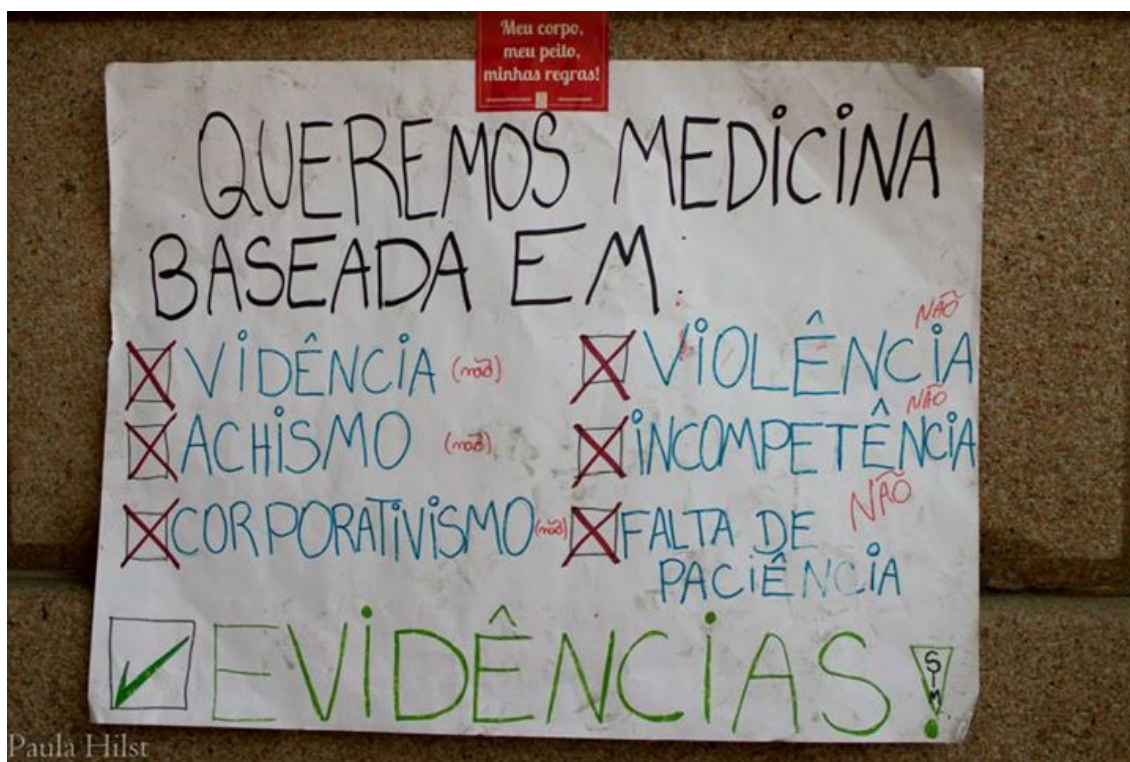 Meu corpo,
meu peito,
minhas regras!
QUEREMOS MEDICINA
BASEADA EM:
VIDÊNCIA (não)
ACHISMO (não)
CORPORATIVISMO (não)
VIOLÊNCIA NÃO
INCOMPETÊNCIA NÃO
FALTA DE NÃO
PACIÊNCIA
EVIDÊNCIAS SIM
Paula Hilst